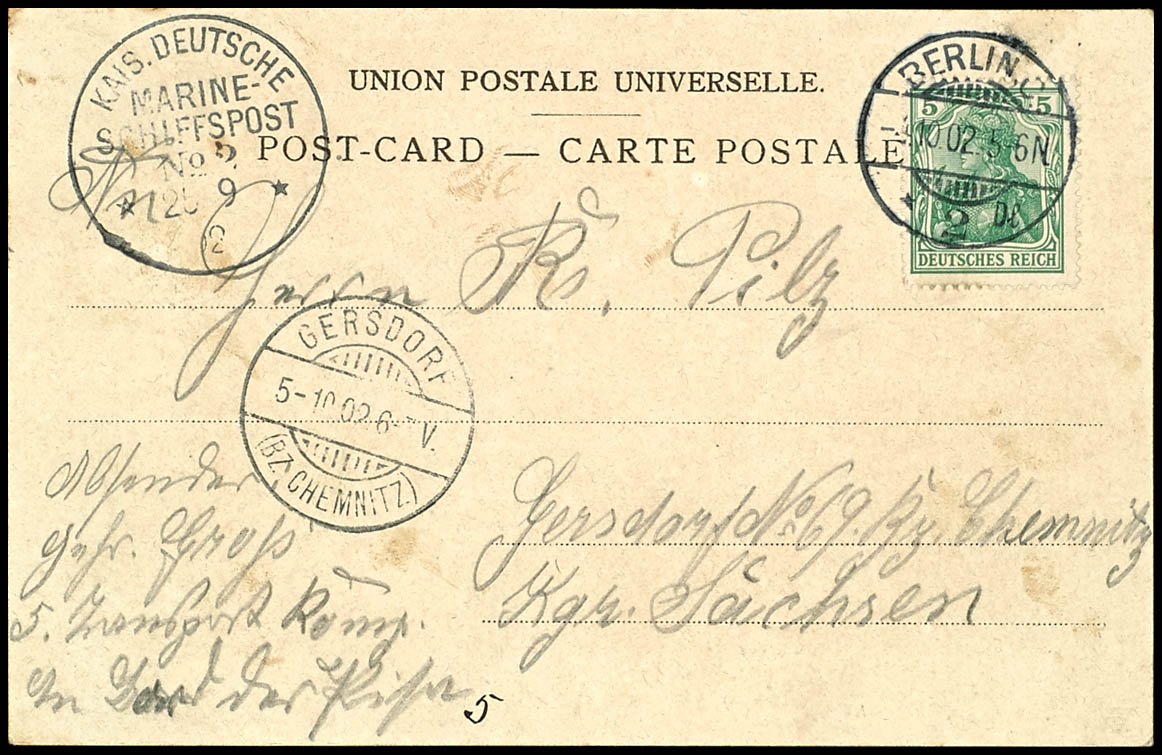 KAIS. DEUTSCHE
MARINE-
SCHIFFSPOST
No 2
9
2
UNION POSTALE UNIVERSELLE.
POST-CARD — CARTE POSTALE
BERLIN, C
10.02. 5-6N
2
5 5
DEUTSCHES REICH
Herrn R. Pilz
GERSDORF
5-10.02.6- V.
(BZ. CHEMNITZ)
Gersdorf No 69. Bz. Chemnitz
Kgr. Sachsen
Absender
Gefr. Groß
5. Transport Komp.
An Bord der Pisa
5